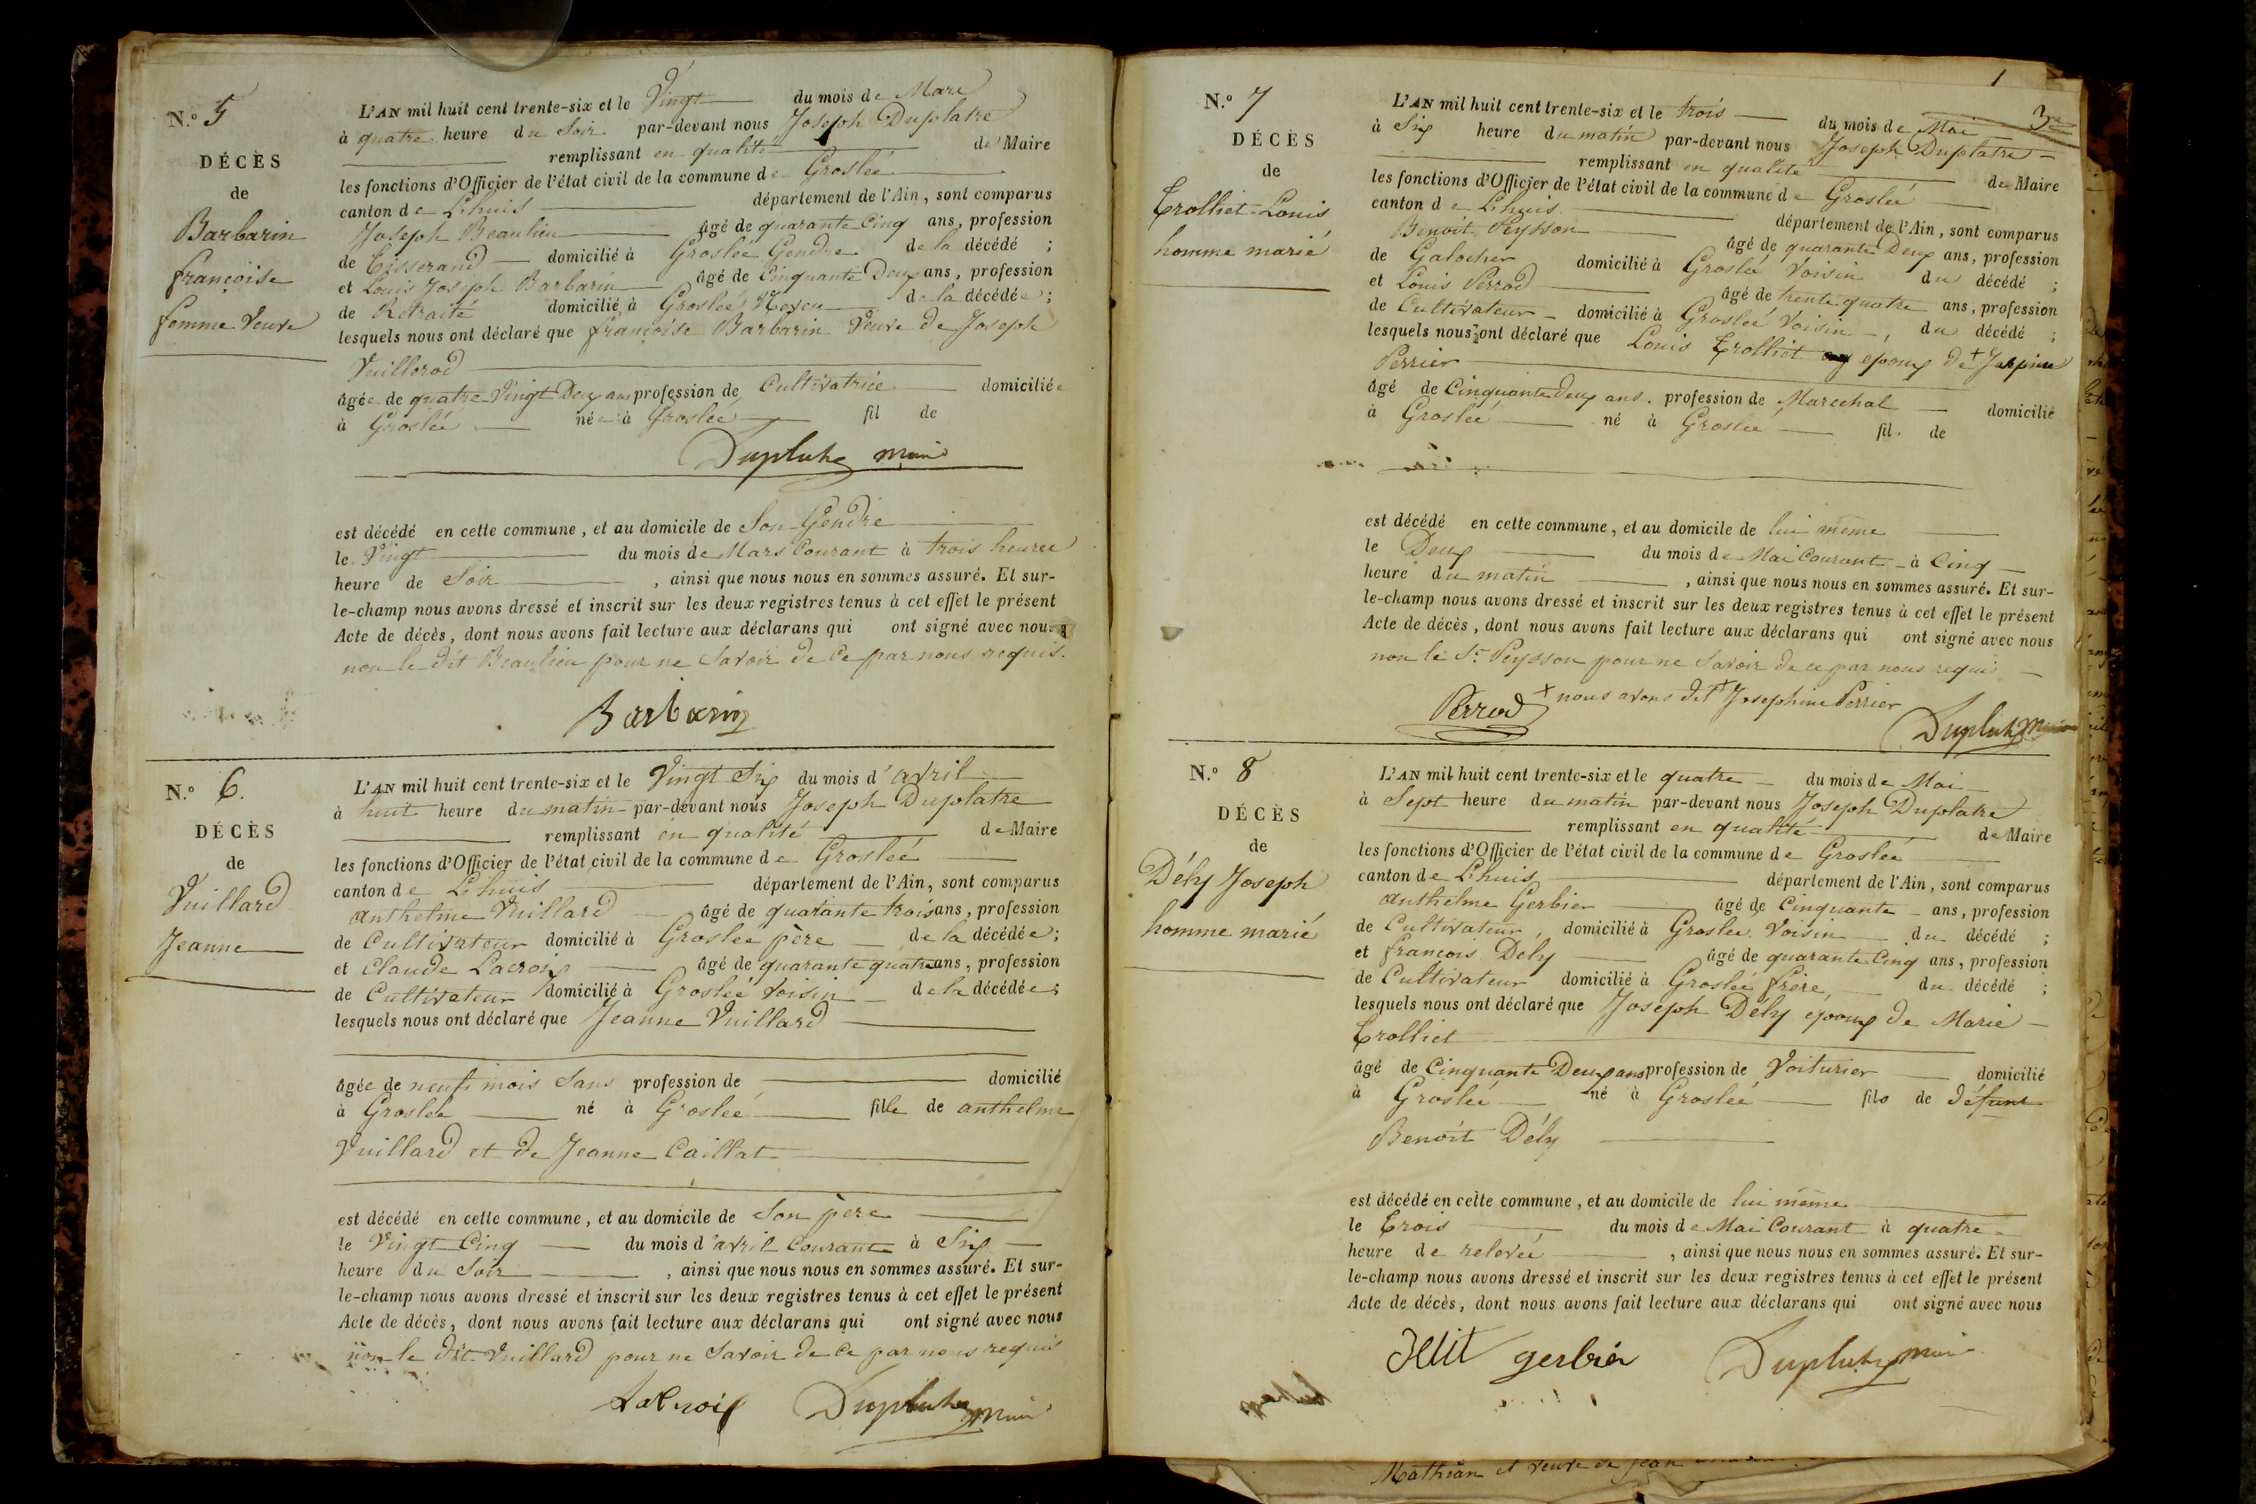 N.º 5
DÉCÈS
de
Barbarin
françoise
femme Veuve
L'AN mil huit cent trente-six et le Vingt du mois de Mars
à quatre heure du Soir par-devant nous Joseph Duplatre
remplissant en qualité de Maire
les fonctions d'Officier de l'état civil de la commune de Groslée
canton de Lhuis département de l'Ain, sont comparus
Joseph Beaulieu âgé de quarante Cinq ans, profession
de Tisserand domicilié à Groslée Gendre de la décédé ;
et Louis Joseph Barbarin âgé de Cinquante Deux ans, profession
de Retraité domicilié à Groslée Neveu de la décédée ;
lesquels nous ont déclaré que françoise Barbarin Veuve de Joseph
Vuillerod
âgée de quatre Vingt Deux ans profession de Cultivatrice domiciliée
à Groslée née à Groslée fil de
Duplatre maire
est décédé en cette commune, et au domicile de Son Gendre
le Vingt du mois de Mars Courant à trois heures
heure de Soir , ainsi que nous nous en sommes assuré. Et sur-
le-champ nous avons dressé et inscrit sur les deux registres tenus à cet effet le présent
Acte de décès, dont nous avons fait lecture aux déclarans qui ont signé avec nous
non le dit Beaulieu pour ne Savoir de Ce par nous requis.
Barbarin
N.º 6.
DÉCÈS
de
Vuillard
Jeanne
L'AN mil huit cent trente-six et le Vingt Six du mois d'avril
à huit heure du matin par-devant nous Joseph Duplatre
remplissant en qualité de Maire
les fonctions d'Officier de l'état civil de la commune de Groslée
canton de Lhuis département de l'Ain, sont comparus
anthelme Vuillard âgé de quarante trois ans, profession
de Cultivateur domicilié à Groslée père de la décédée ;
et Claude Lacroix âgé de quarante quatre ans, profession
de Cultivateur domicilié à Groslée Voisin de la décédée ;
lesquels nous ont déclaré que Jeanne Vuillard
âgée de neufs mois Sans profession de domicilié
à Groslée né à Groslée fille de anthelme
Vuillard et de Jeanne Caillat
est décédé en cette commune, et au domicile de Son père
le Vingt Cinq du mois d'avril Courant à Six
heure du Soir , ainsi que nous nous en sommes assuré. Et sur-
le-champ nous avons dressé et inscrit sur les deux registres tenus à cet effet le présent
Acte de décès, dont nous avons fait lecture aux déclarans qui ont signé avec nous
non le dit Vuillard pour ne Savoir de Ce par nous requis
Lacroix Duplatre maire
1
3
N.º 7
DÉCÈS
de
Trolliet Louis
homme marié
L'AN mil huit cent trente-six et le trois du mois de Mai
à Six heure du matin par-devant nous Joseph Duplatre
remplissant en qualité de Maire
les fonctions d'Officier de l'état civil de la commune de Groslée
canton de Lhuis département de l'Ain, sont comparus
Benoit Peysson âgé de quarante Deux ans, profession
de Galocher domicilié à Groslée Voisin du décédé ;
et Louis Perrod âgé de trente quatre ans, profession
de Cultivateur domicilié à Groslée Voisin du décédé ;
lesquels nous ont déclaré que Louis Trolliet epoux de + Jospine
Perrier
âgé de Cinquante Deux ans. profession de Marechal domicilié
à Groslée né à Groslée fil. de
est décédé en cette commune, et au domicile de lui même
le Deux du mois de Mai Courant à Cinq
heure du matin , ainsi que nous nous en sommes assuré. Et sur-
le-champ nous avons dressé et inscrit sur les deux registres tenus à cet effet le présent
Acte de décès, dont nous avons fait lecture aux déclarans qui ont signé avec nous
non le Sr Peysson pour ne Savoir de ce par nous requi
+ nous avons dit + Josephine Perrier
Perrod Duplatre Maire
N.º 8
DÉCÈS
de
Dély Joseph
homme marié
L'AN mil huit cent trente-six et le quatre du mois de Mai
à Sept heure du matin par-devant nous Joseph Duplatre
remplissant en qualité de Maire
les fonctions d'Officier de l'état civil de la commune de Groslée
canton de Lhuis département de l'Ain, sont comparus
anthelme Gerbier âgé de Cinquante ans, profession
de Cultivateur domicilié à Groslée Voisin du décédé ;
et francois Dély âgé de quarante Cinq ans, profession
de Cultivateur domicilié à Groslée frère du décédé ;
lesquels nous ont déclaré que Joseph Dély epoux de Marie
Trolliet
âgé de Cinquante Deux ans profession de Voiturier domicilié
à Groslée né à Groslée fils de défunt
Benoît Dély
est décédé en cette commune, et au domicile de lui même
le Trois du mois de Mai Courant à quatre
heure de relevée , ainsi que nous nous en sommes assuré. Et sur-
le-champ nous avons dressé et inscrit sur les deux registres tenus à cet effet le présent
Acte de décès, dont nous avons fait lecture aux déclarans qui ont signé avec nous
gerbier Duplatre maire
Mathian et veuve de jean